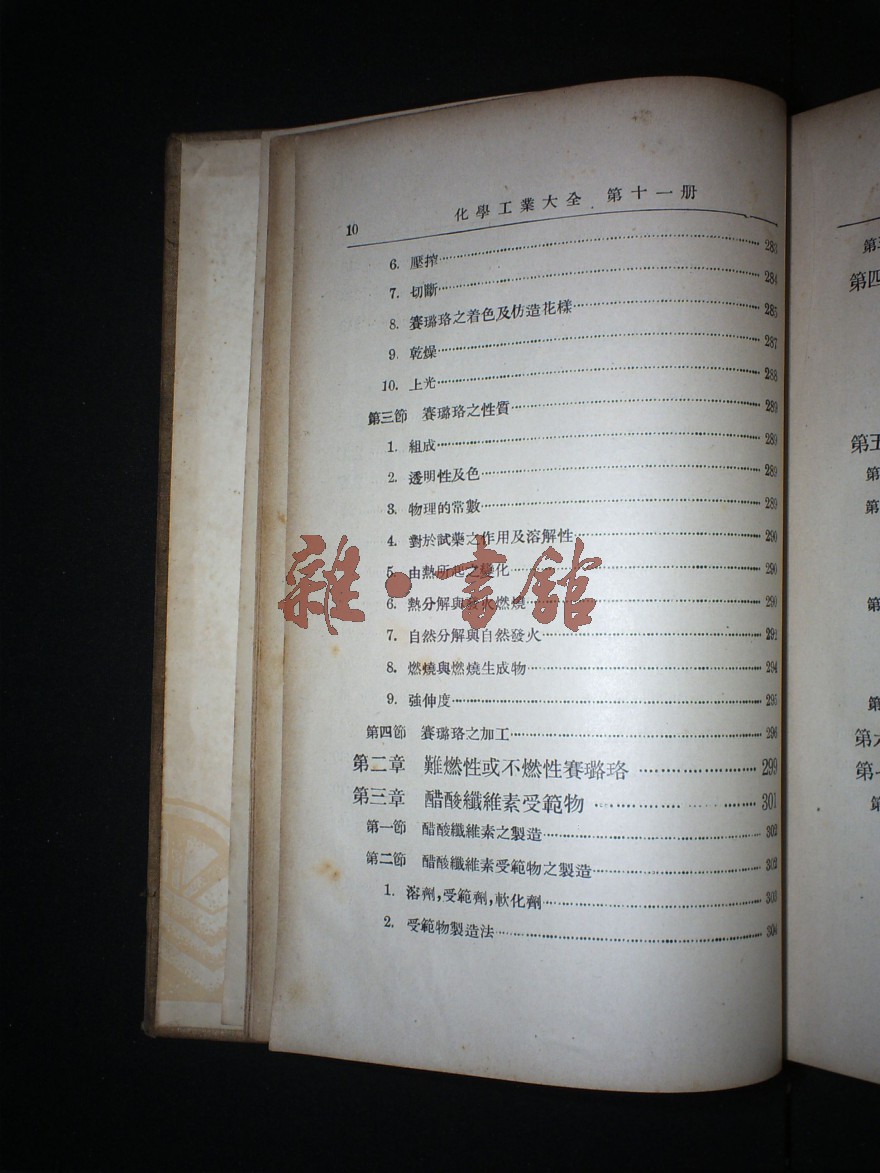 10
化學工業大全 第十一册
6. 壓搾 283
7. 切斷 284
8. 賽璐珞之着色及仿造花樣 285
9. 乾燥 287
10. 上光 288
第三節 賽璐珞之性質 289
1. 組成 289
2. 透明性及色 289
3. 物理的常數 289
4. 對於試藥之作用及溶解性 290
5. 由熱所起之變化 290
6. 熱分解與發火燃燒 290
7. 自然分解與自然發火 292
8. 燃燒與燃燒生成物 294
9. 強伸度 295
第四節 賽璐珞之加工 296
第二章 難燃性或不燃性賽璐珞 299
第三章 醋酸纖維素受範物 301
第一節 醋酸纖維素之製造 302
第二節 醋酸纖維素受範物之製造 302
1. 溶劑,受範劑,軟化劑 303
2. 受範物製造法 304
雜·書館
第四
第五
第
第
第
第
第六
第
第